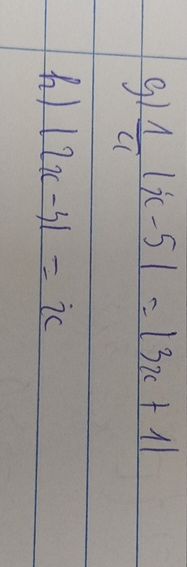 g) 1/4 |x-5| = |3x+1|
h) |2x-3| = x